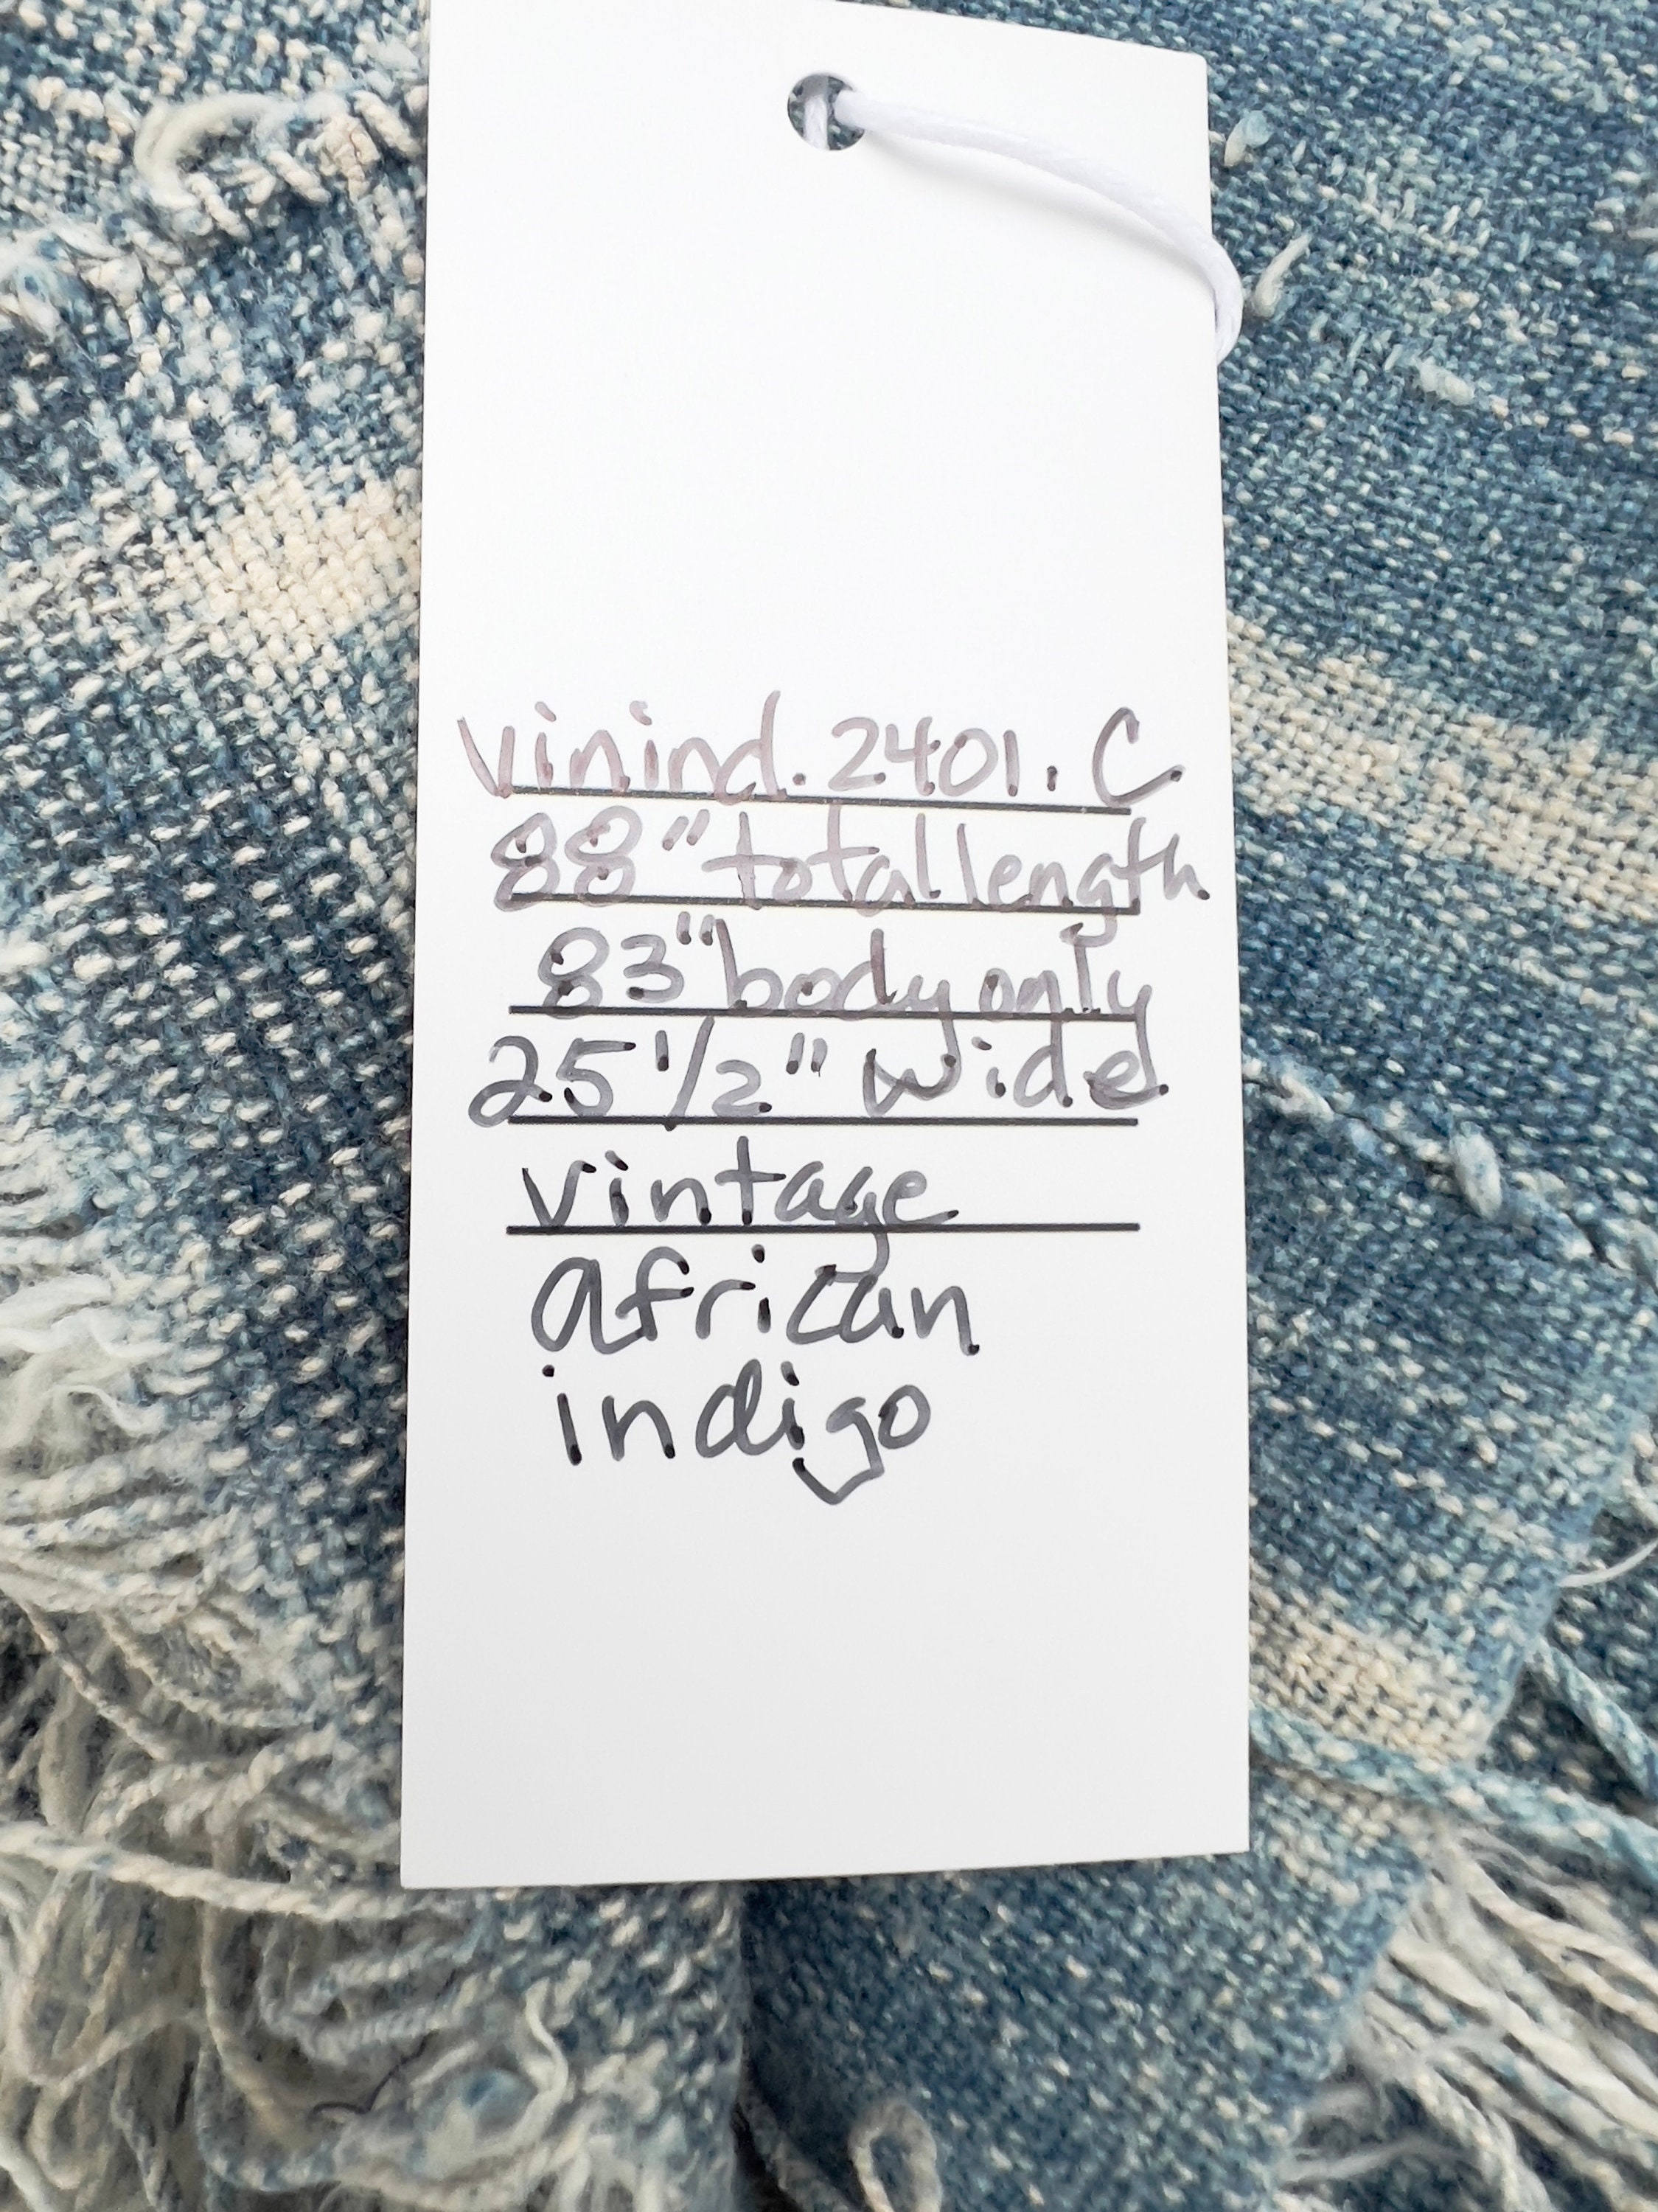 vinind.2401.C
88" total length
83" body only
25 1/2" wide
vintage
african
indigo